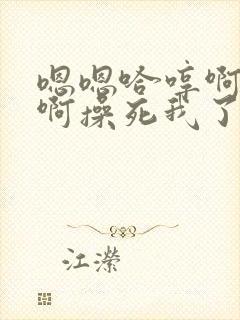 嗯嗯哈哼啊
啊操死我了
江潆